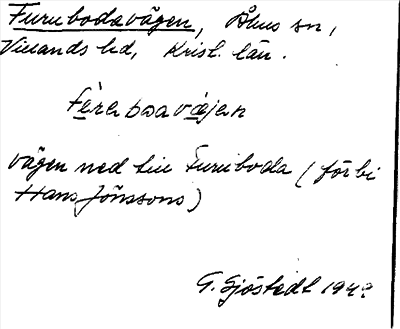 Furubodavägen, Åhus sn,
Villands hd, Krist. län.
vägen ned till Furuboda (förbi
Hans Jönssons)
G. Sjöstedt